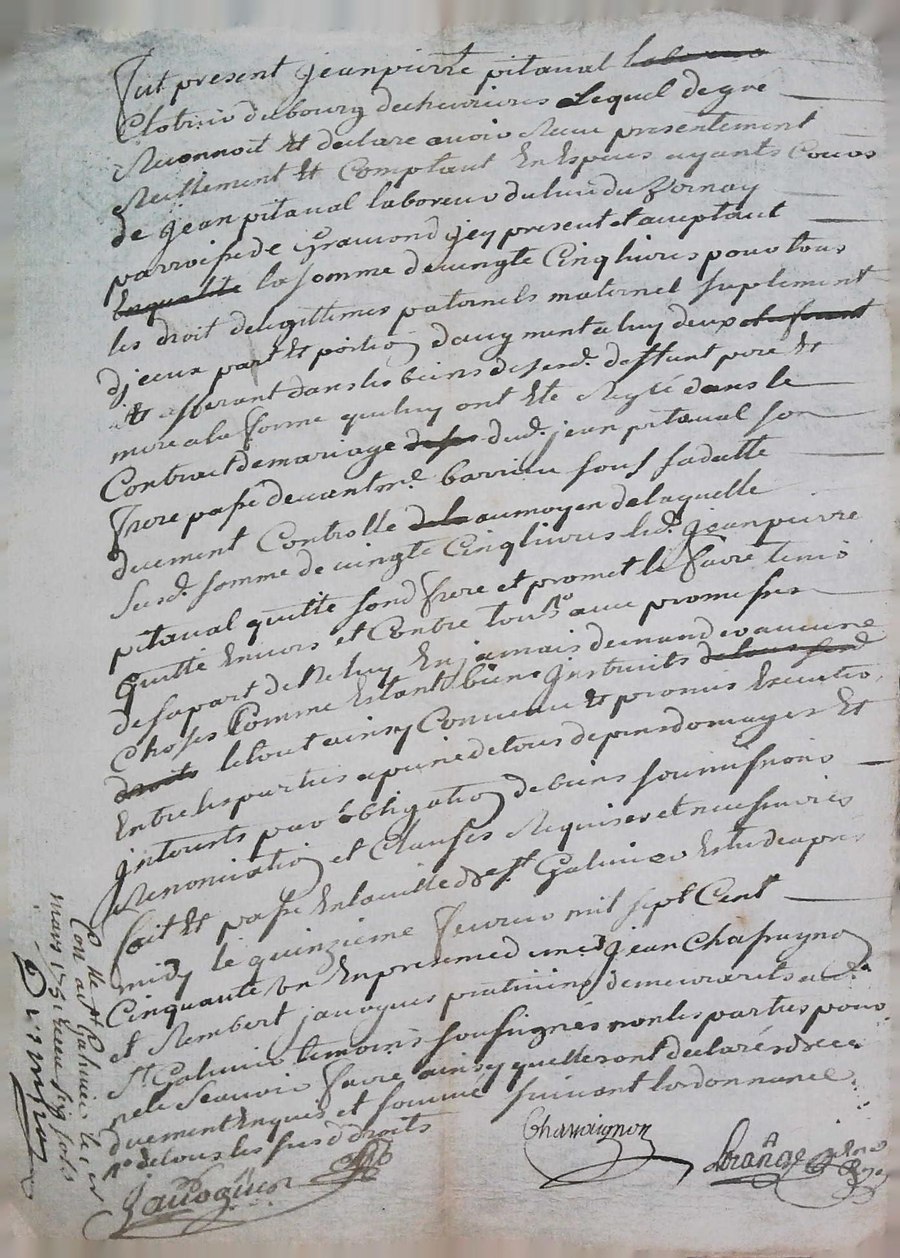 Fut present jeanpierre pitaval laboureur
Clotrier du bourg de chevrieres Lequel de gré
Reconnoit Et declare avoir Receu presentement
Reellement Et Comptant En Especes ayants Cours
de jean pitaval laboreur du lieu du
parroisse de Gramond jcy present et acceptant
Enqualité la somme de vingte Cinq livres pour tous
les droit de legittimes paternels maternel suplement
djceux part Et portion d'augment a luy deux
Et afferant dans les biens de sesd. deffunt pere Et
mere a la forme quiluy ont Eté Reglé dans le
Contrait de mariage dud. jean pitaval son
frere passé devant me. barrieu sous sa datte
duement Controllé de la au moyen de laquelle
susd. somme de vingte Cinq livres led. jean pierre
pitaval quitte sond frere et promet le faire tenir
quitte Envers et Contre tous avec promesse
de sa part de Ne luy En jamais demander aucune
Choses Comme Estant biens jnstruits de tous sesd
droits le tout ainsy Convenu Et promis Execution
Entre les parties a peine de tous depens domages Et
jnterests par obligation de biens soumissions
Renonciation et Clauses Requises et necessaires
fait Et passé En la ville de st Galmier Estude apres
midy le quinzieme fevrier mil sept Cent
Cinquante un En presence de mes jean Chassaignon
et Rembert javogues praticiens demeurants
St Galmier temoins soussignés non les parties pour
ne le scavoir faire ainsy quelles ont declaré de ce
duement Enquis et sommé suivant lordonnance
de tous les susd droits
Chassaignon
Javogues
Con. a st Galmier le
mars 1751 Receu sols